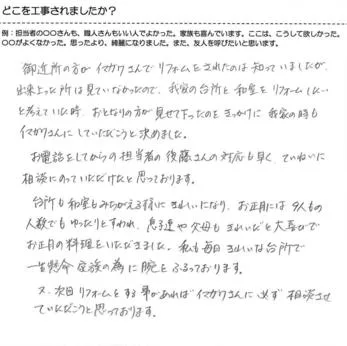 どこを工事されましたか？
例：担当者の〇〇さんも、職人さんもいい人でよかった。家族も喜んでいます。ここは、こうして欲しかった。
〇〇がよくなかった。思ったより、綺麗になりました。また、友人を呼びたいと思います。
御近所の方がイマガワさんでリフォームをされたのは知っていましたが
出来上った所は見ていなかったので、我家の台所と和室をリフォームしたい
と考えていた時、おとなりの方が見せて下ったのをきっかけに我家の時も
イマガワさんにしていただこうと決めました。
お電話をしてからの担当者の後藤さんの対応も早く、ていねいに
相談にのっていただけたと思っております。
台所も和室もみちがえる様にきれいになり、お正月には9人もの
人数でもゆったりとすわれ、息子達や父母もきれいだと大喜びで
お正月の料理をいただきました。私も毎日きれいな台所で
一生懸命家族の為に腕をふるっております。
又、次回リフォームをする事があればイマガワさんに必ず相談させ
ていただこうと思っております。